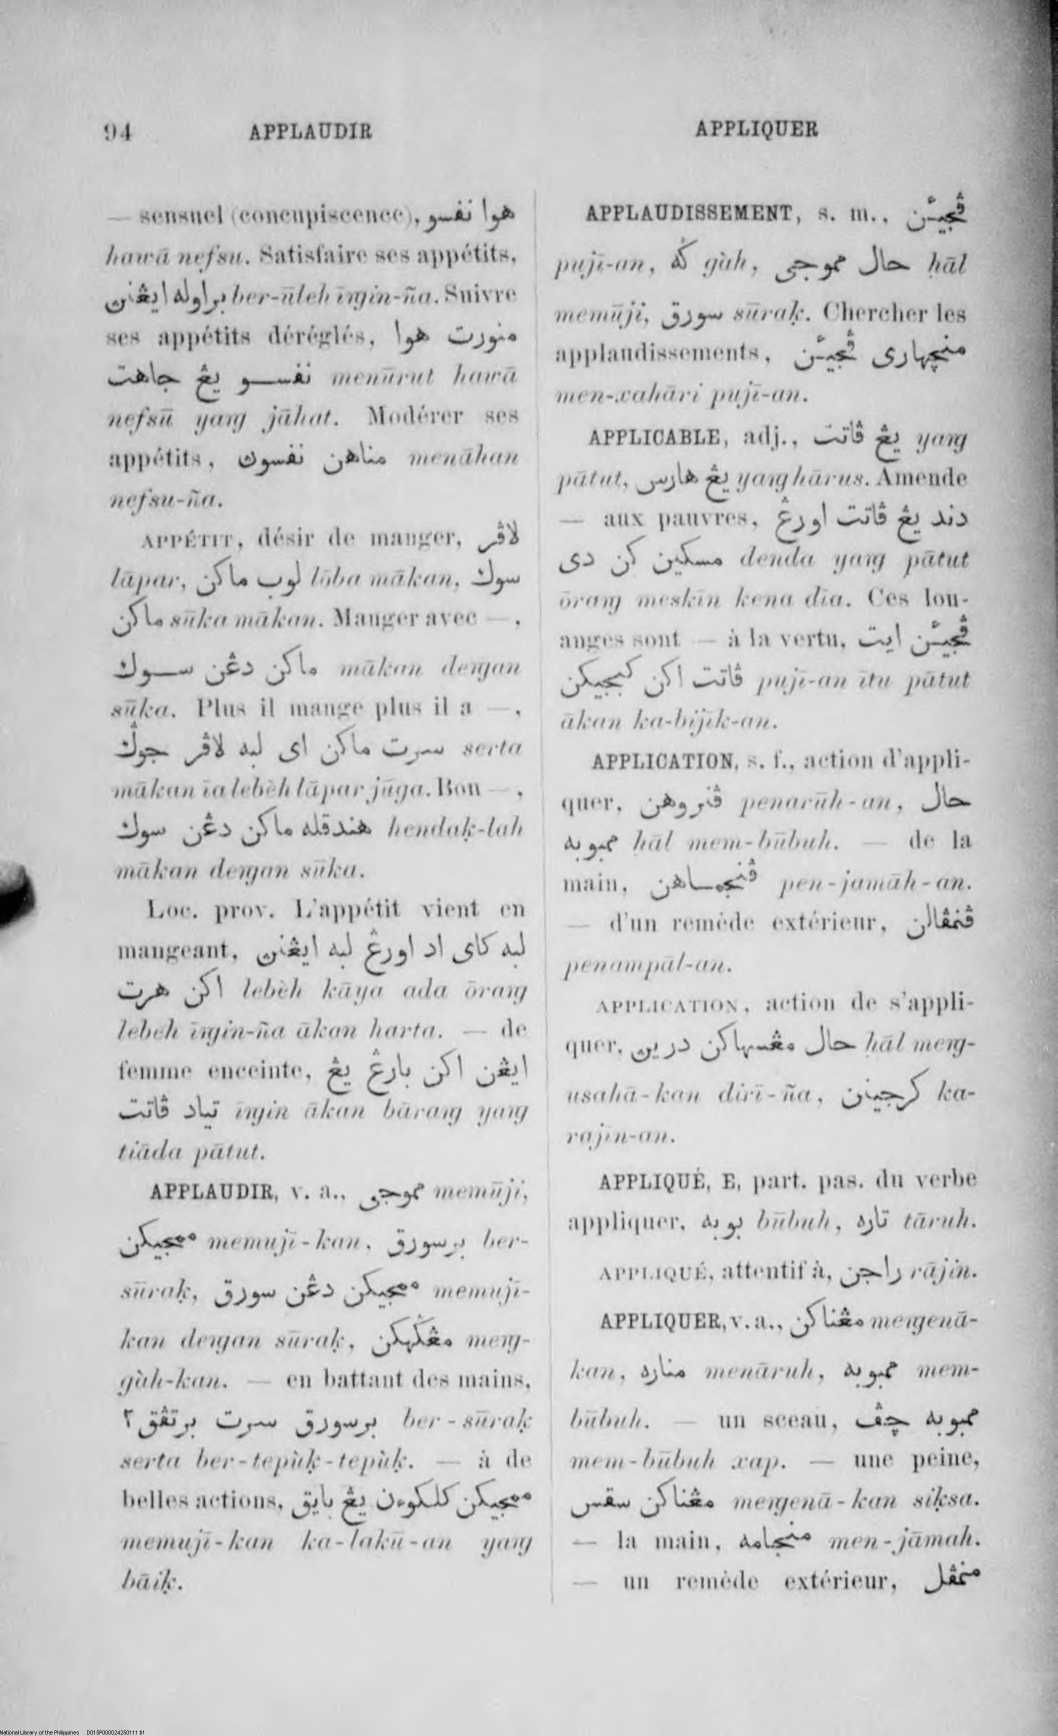 94 APPLAUDIR
APPLIQUER
— sensuel (concupiscence), هوا نفسو
hawā nefsu. Satisfaire ses appétits,
براوله ايڠنن ber-ūleh īṅgin-ña. Suivre
ses appétits déréglés, منورت هوا
نفسو يڠ جاهت menūrut hawā
nefsū yaṅg jāhat. Modérer ses
appétits, مناهن نفسوڽ menāhan
nefsu-ña.
APPÉTIT, désir de manger, لاڤر
lāpar, لوب ماكن lōba mākan, سوك
ماكن sūka mākan. Manger avec —,
ماكن دڠن سوك mākan deṅgan
sūka. Plus il mange plus il a —,
سرت ماكن اى لبه لاڤر جوݢ serta
mākan īa lebèh lāpar jūga. Bon —,
هندقله ماكن دڠن سوك hendaḳ-lah
mākan deṅgan sūka.
Loc. prov. L'appétit vient en
mangeant, لبه كاى اد اورڠ لبه ايڠنن
اكن هرت lebèh kāya ada ōraṅg
lebeh īṅgin-ña ākan harta. — de
femme enceinte, ايڠن اكن بارڠ يڠ
تياد ڤاتت īṅgin ākan bāraṅg yaṅg
tiāda pātut.
APPLAUDIR, v. a., مموجى memūji,
ممجيكن memuji-kan, برسورق ber-
sūraḳ, ممجيكن دڠن سورق memuji-
kan deṅgan sūraḳ, مڠݢهكن meṅg-
gùh-kan. — en battant des mains,
برسورق سرت برتڤق ٢ ber-sūraḳ
serta ber-tepùḳ-tepùḳ. — à de
belles actions, ممجيكن كلكوءن يڠ بايق
memujī-kan ka-lakū-an yaṅg
bāiḳ.
APPLAUDISSEMENT, s. m., ڤجيئن
pujī-an, ݢه gùh, حال مموجى ḥāl
memūji, سورق sūraḳ. Chercher les
applaudissements, منچهارى ڤجيئن
men-xahāri pujī-an.
APPLICABLE, adj., يڠ ڤاتت yaṅg
pātut, يڠ هارس yaṅg hārus. Amende
— aux pauvres, دند يڠ ڤاتت اورڠ
مسكين كن دى denda yaṅg pātut
ōraṅg meskīn kena dīa. Ces lou-
anges sont — à la vertu, ڤجيئن ايت
ڤاتت اكن كبجيكن pujī-an ītu pātut
ākan ka-bijīk-an.
APPLICATION, s. f., action d'appli-
quer, ڤنروهن penarūh-an, حال
ممبوبه ḥāl mem-būbuh. — de la
main, ڤنجماهن pen-jamāh-an.
— d'un remède extérieur, ڤنمڤالن
penampāl-an.
APPLICATION, action de s'appli-
quer, حال مڠسهاكن درين ḥāl meṅg-
usahā-kan dirī-ña, كرجينن ka-
rajīn-an.
APPLIQUÉ, E, part. pas. du verbe
appliquer, بوبه būbuh, تاره tāruh.
APPLIQUÉ, attentif à, راجن rājin.
APPLIQUER, v. a., مڠناكن meṅgenā-
kan, مناره menāruh, ممبوبه mem-
būbuh. — un sceau, ممبوبه چڤ
mem-būbuh xap. — une peine,
مڠناكن سقس meṅgenā-kan siḳsa.
— la main, منجامه men-jāmah.
— un remède extérieur, منمڤل
National Library of the Philippines